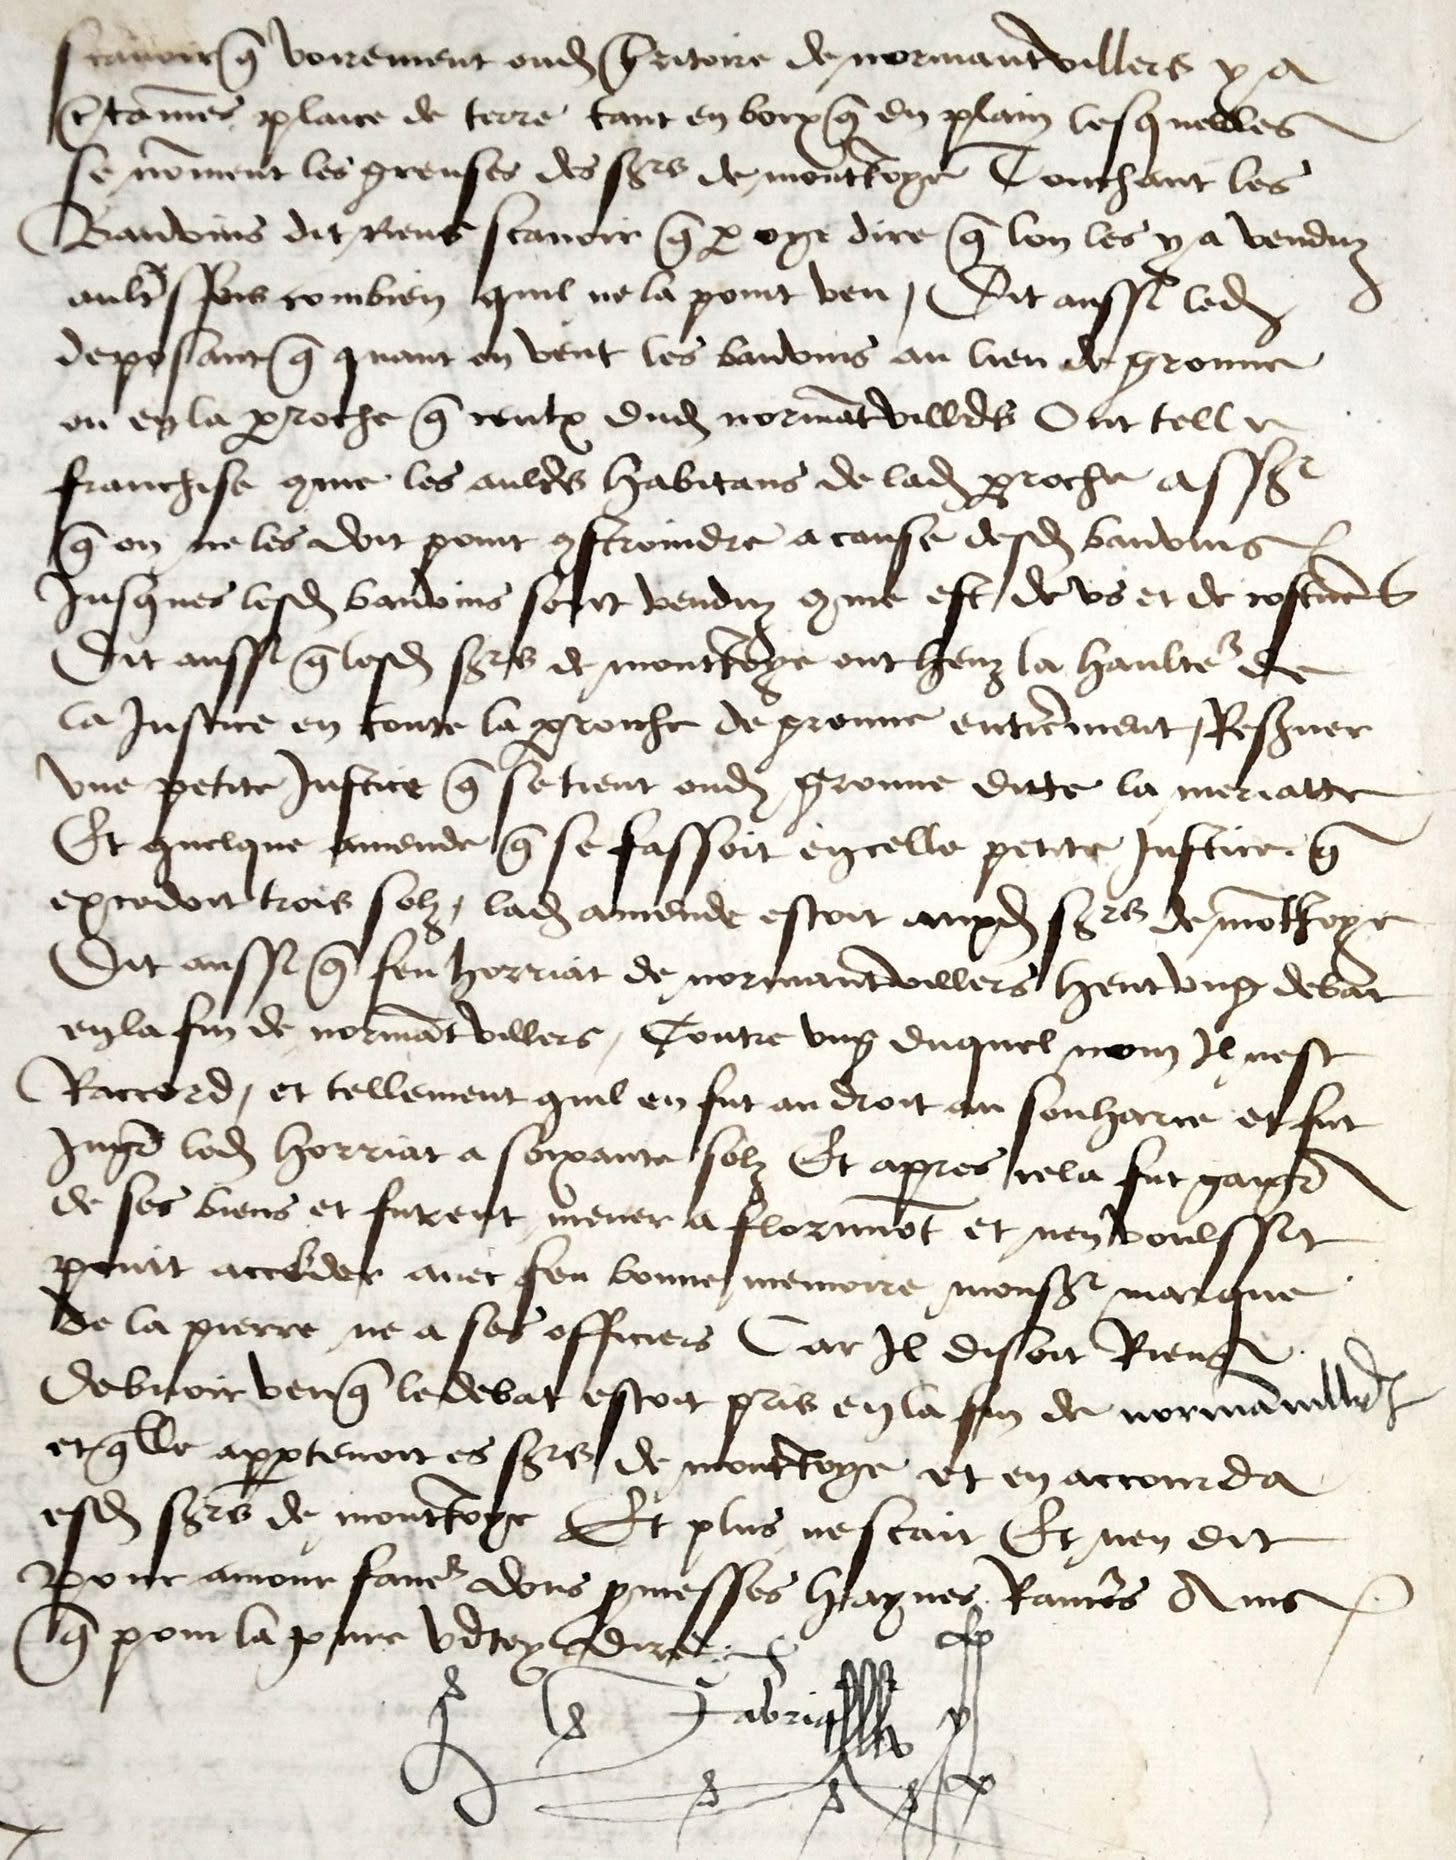 scavoir q voirement oud territoire de normantvillers y a
certaines place de terre tant en boix q en plain lesquelles
se noment les greuses des sgrs de montjoye Touchant les
Banvins dit riens scavoir q p oyr dire q lon les y a venduz
aultfois combien quil ne la point veu / Dit aussi led
deposant q quant on vent les banvins au lieu de gronne
ou en la proche q ceulx dud normatvillers Ont telle
franchise 9me les aultrs habitans de lad proche assgr
q on ne les doit point 9stroindre a cause desd banvins
Jusques lesd banvins sont venduz 9me est de us et de costume
Dit aussi q lesd sgrs de montjoye ont heuz la haulter de
la Justice en toute la proiche de gronne entierement / Reserver
une petite Justice q se tient oud gronne ditte la meriatte
Et quelque amende q se fassoit en celle petite Justice q
excedoit trois solz / lad amende estoit auxd sgrs de motjoye
Dit aussi q feu horriat de normantvillers heut ung debat
en la fin de normatvillers / Contre ung duquel nom Il nest
Raccord / et tellement quil en fut au droit au souharce et fut
Juge led horriat a soixante solz Et apres cela fut gaige
de ses biens et furent mener a florimot et nen voulssit
point accorder avec feu bonne memoire monsgr marque
de la pierre ne a ses officiers Car Il disoit Riens
Debvoir veu q le debat estoit pris en la fin de normavillers
et qlle apptenoit es sgrs de montjoye et en accourda
esd sgrs de montjoye Et plus ne scait Et nen dit
Pour amour faver dons pmesses haynes Rancrs Ains
q pour la pure vdte dire